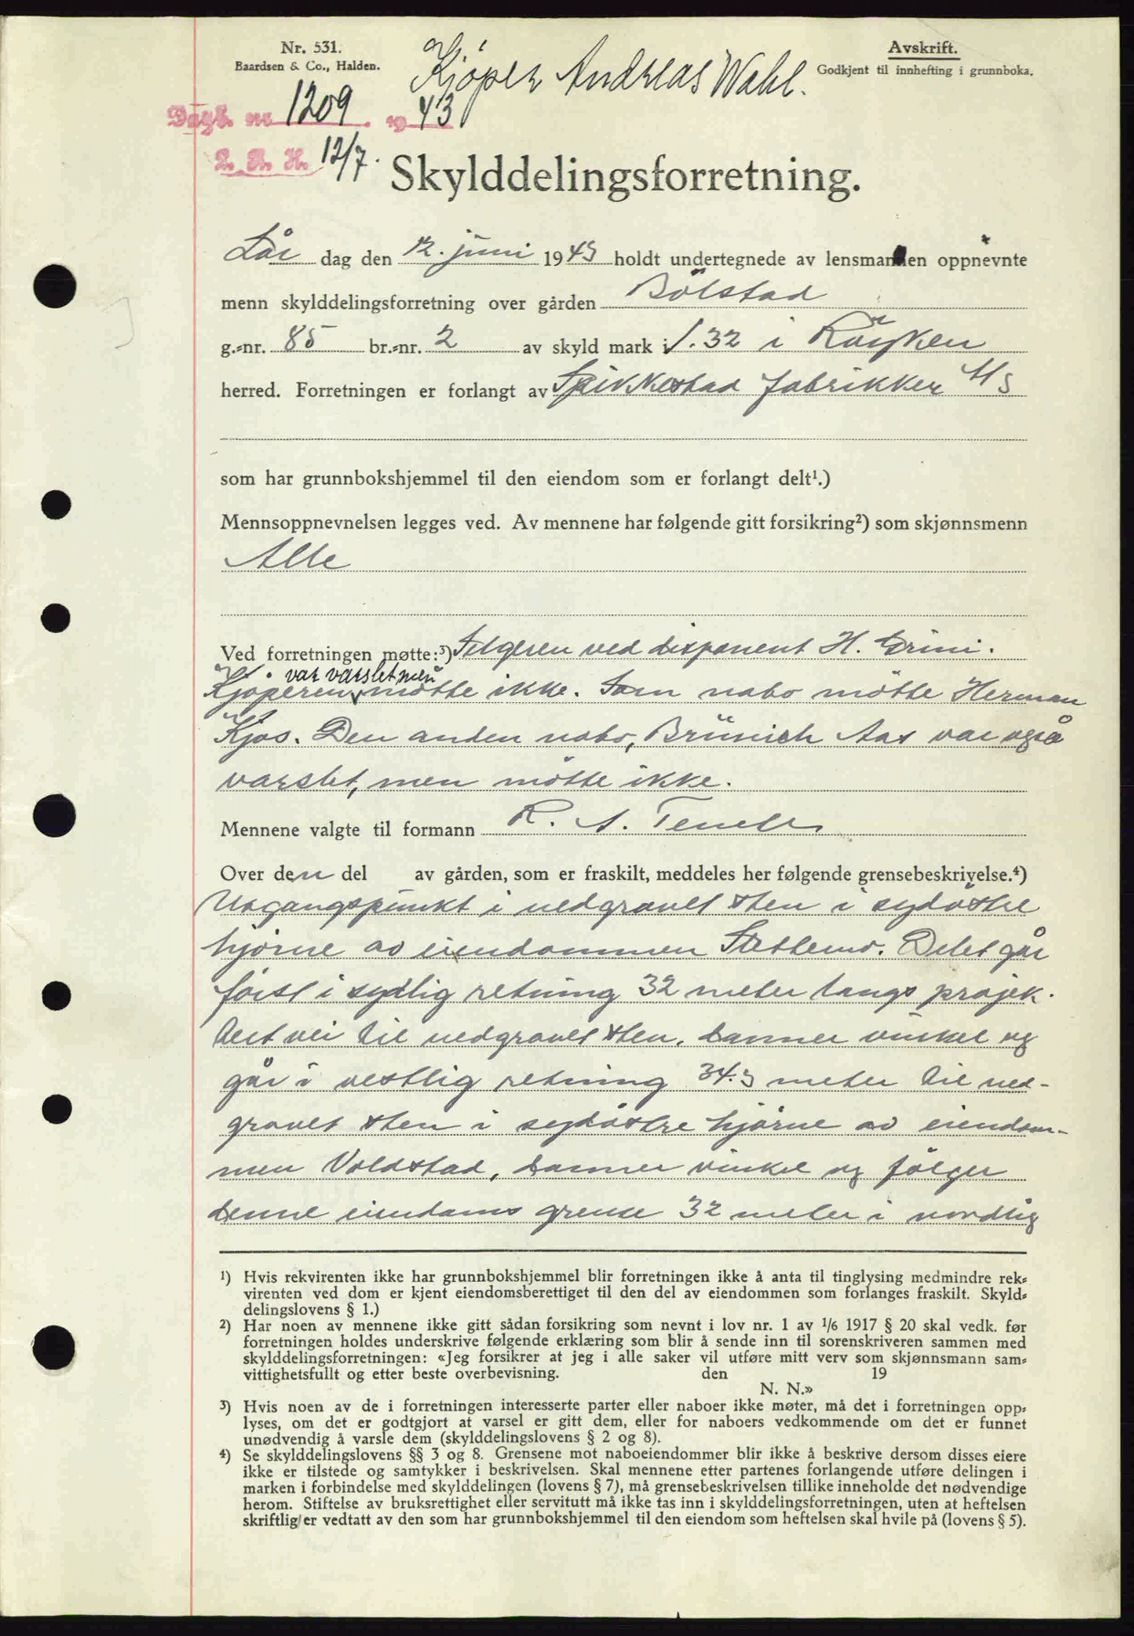 Nr. 531.
Baardsen & Co., Halden.
Kjöper Andreas Wahl.
Avskrift.
Godkjent til innhefting i grunnboka.
Dagb. nr. 1209 . 19 43
L. R. H. 12/7.
Skylddelingsforretning.
Lör dag den 12. juni 1943 holdt undertegnede av lensmannen oppnevnte
menn skylddelingsforretning over gården Bölstad
g.-nr. 85 br.-nr. 2 av skyld mark 1.32 i Röyken
herred. Forretningen er forlangt av Spikkestad fabrikker A/S
som har grunnbokshjemmel til den eiendom som er forlangt delt¹.)
Mennsoppnevnelsen legges ved. Av mennene har følgende gitt forsikring²) som skjønnsmenn
Alle
Ved forretningen møtte:³) Selgeren ved disponent H. Grini.
var varslet men
Kjöperen mötte ikke. Som nabo mötte Herman
Kjos. Den anden nabo, Brünich Aas var også
varslet, men mötte ikke.
Mennene valgte til formann R. A.
Over den del av gården, som er fraskilt, meddeles her følgende grensebeskrivelse.⁴)
Utgangspunkt i nedgravet sten i sydöstre
hjörne av eiendommen Slettemo. Delet går
först i sydlig retning 32 meter langs projek-
tert vei til nedgravet sten, danner vinkel og
går i vestlig retning 34.3 meter til ned-
gravet sten i sydöstre hjörne av eiendom-
men Voldstad, danner vinkel og fölger
denne eiendoms grense 32 meter i nordlig
¹) Hvis rekvirenten ikke har grunnbokshjemmel blir forretningen ikke å anta til tinglysing medmindre rek-
virenten ved dom er kjent eiendomsberettiget til den del av eiendommen som forlanges fraskilt. Skyld-
delingslovens § 1.)
²) Har noen av mennene ikke gitt sådan forsikring som nevnt i lov nr. 1 av 1/6 1917 § 20 skal vedk. før
forretningen holdes underskrive følgende erklæring som blir å sende inn til sorenskriveren sammen med
skylddelingsforretningen: «Jeg forsikrer at jeg i alle saker vil utføre mitt verv som skjønnsmann sam-
vittighetsfullt og etter beste overbevisning. den 19
N. N.»
³) Hvis noen av de i forretningen interesserte parter eller naboer ikke møter, må det i forretningen opp-
lyses, om det er godtgjort at varsel er gitt dem, eller for naboers vedkommende om det er funnet
unødvendig å varsle dem (skylddelingslovens § 2 og 8).
⁴) Se skylddelingslovens §§ 3 og 8. Grensene mot naboeiendommer blir ikke å beskrive dersom disses eiere
ikke er tilstede og samtykker i beskrivelsen. Skal mennene etter partenes forlangende utføre delingen i
marken i forbindelse med skylddelingen (lovens § 7), må grensebeskrivelsen tillike inneholde det nødvendige
herom. Stiftelse av bruksrettighet eller servitutt må ikke tas inn i skylddelingsforretningen, uten at heftelsen
skriftlig er vedtatt av den som har grunnbokshjemmel til den eiendom som heftelsen skal hvile på (lovens § 5).